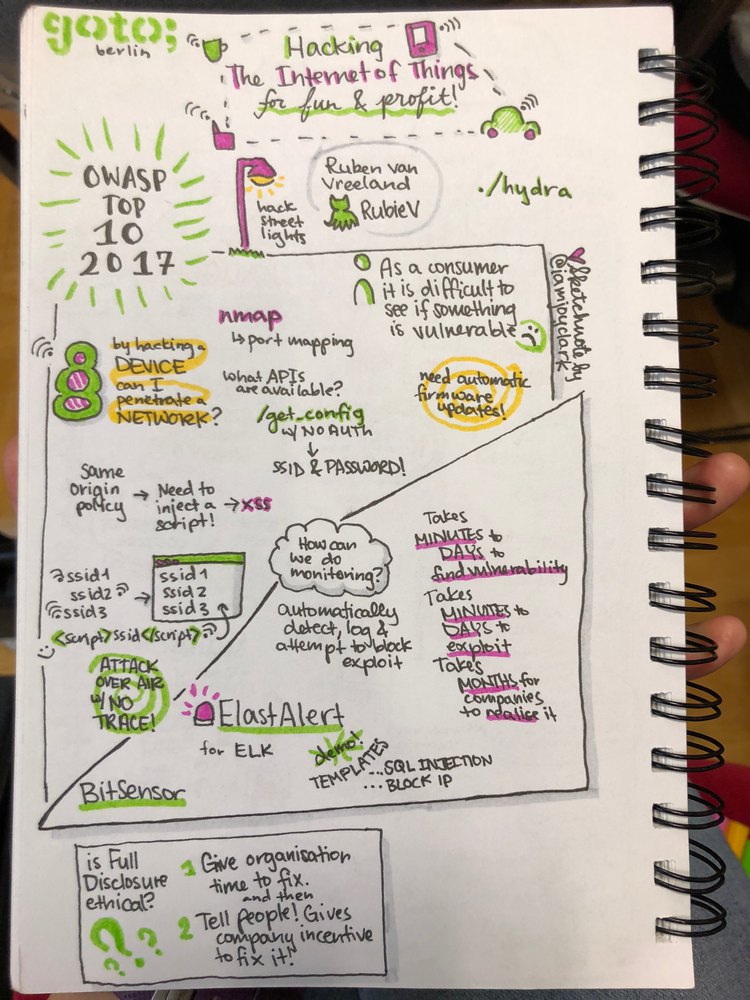 goto;
berlin
Hacking
The Internet of Things
for fun & profit!
OWASP
TOP
10
2017
hack
street
lights
Ruben van
Vreeland
RubieV
./hydra
Sketchnote by
@iamjoyclark
As a consumer
it is difficult to
see if something
is vulnerable
nmap
↳ port mapping
by hacking a
DEVICE
can I
penetrate a
NETWORK?
what APIs
are available?
/get_config
w/ NO AUTH
↓
SSID & PASSWORD!
need automatic
firmware
updates!
Same
origin
policy
→ Need to
inject a
script!
→ XSS
ssid1
ssid2
ssid3
<script>ssid</script>
→
ssid1
ssid2
ssid3
ATTACK
OVER AIR
W/ NO
TRACE!
How can
we do
monitoring?
automatically
detect, log &
attempt to block
exploit
Takes
MINUTES to
DAYS to
find vulnerability
Takes
MINUTES to
DAYS to
exploit
Takes
MONTHS for
companies
to realise it
ElastAlert
for ELK
demo!
TEMPLATES
...SQL INJECTION
... BLOCK IP
BitSensor
is Full
Disclosure
ethical?
???
1 Give organisation
time to fix.
and then
2 Tell people! Gives
company incentive
to fix it!